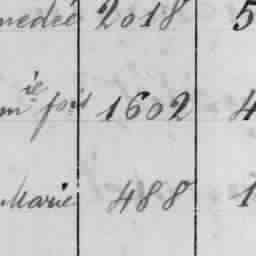 medée 2018 5
mie fois 1602 4
Marie 488 1